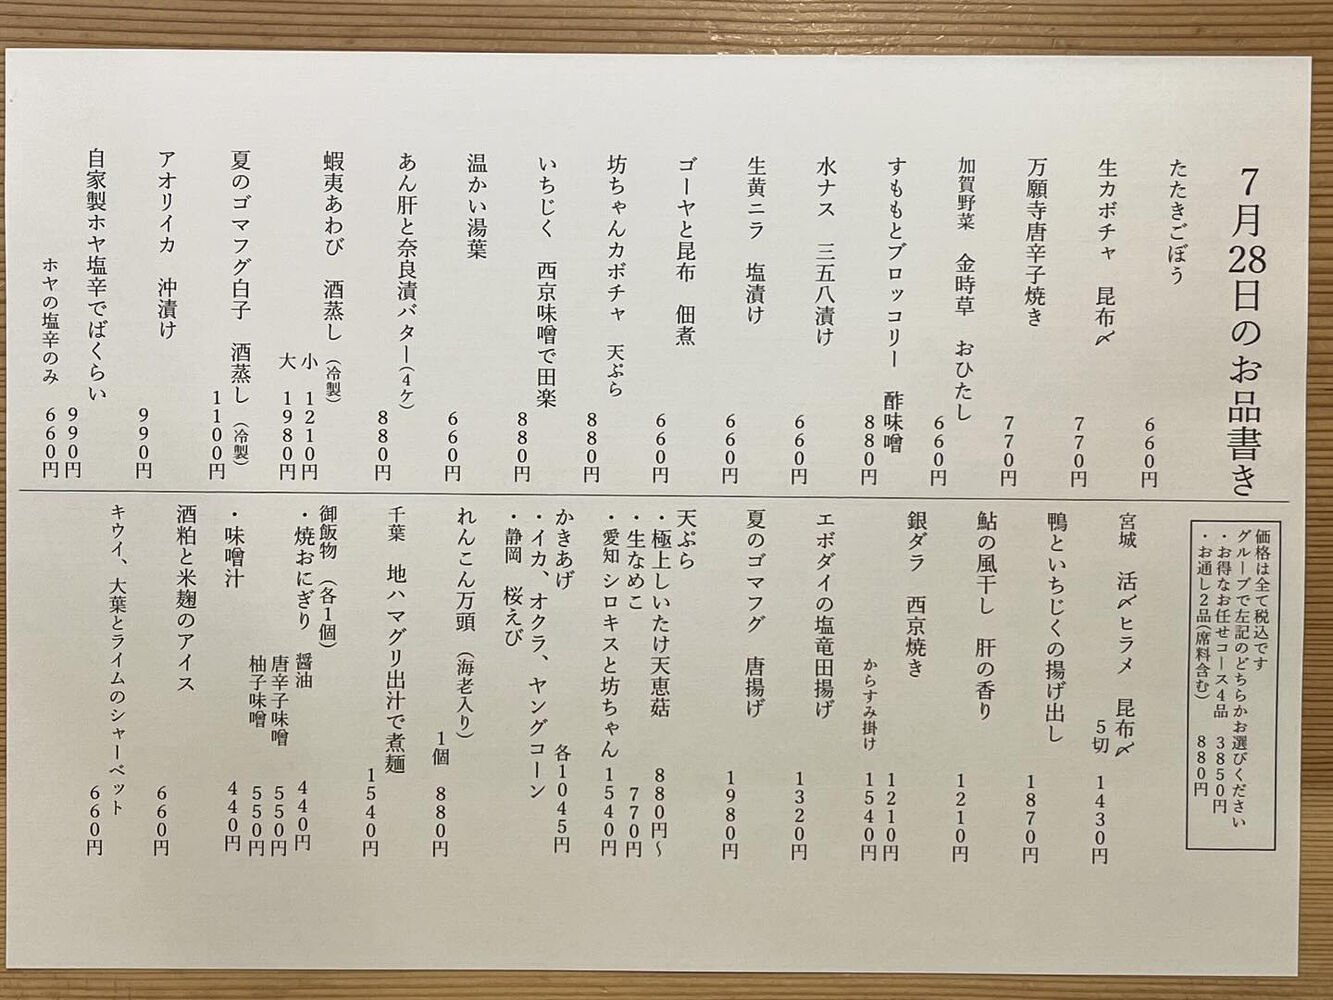 7月28日のお品書き
たたきごぼう
660円
生カボチャ 昆布〆
770円
万願寺唐辛子焼き
770円
加賀野菜 金時草 おひたし
660円
すももとブロッコリー 酢味噌
880円
水ナス 三五八漬け
660円
生黄ニラ 塩漬け
660円
ゴーヤと昆布 佃煮
660円
坊ちゃんカボチャ 天ぷら
880円
いちじく 西京味噌で田楽
880円
温かい湯葉
660円
あん肝と奈良漬バター(4ケ)
880円
蝦夷あわび 酒蒸し(冷製)
小 1210円
大 1980円
夏のゴマフグ白子 酒蒸し(冷製)
1100円
アオリイカ 沖漬け
990円
自家製ホヤ塩辛でばくらい
990円
ホヤの塩辛のみ 660円
価格は全て税込です
グループで左記のどちらかお選びください
・お得なお任せコース4品 3850円
・お通し2品(席料含む) 880円
宮城 活〆ヒラメ 昆布〆
5切 1430円
鴨といちじくの揚げ出し
1870円
鮎の風干し 肝の香り
1210円
銀ダラ 西京焼き
1210円
からすみ掛け 1540円
エボダイの塩竜田揚げ
1320円
夏のゴマフグ 唐揚げ
1980円
天ぷら
・極上しいたけ天恵菇 880円~
・生なめこ 770円
・愛知 シロキスと坊ちゃん 1540円
かきあげ 各1045円
・イカ、オクラ、ヤングコーン
・静岡 桜えび
れんこん万頭(海老入り)
1個 880円
千葉 地ハマグリ出汁で煮麺
1540円
御飯物(各1個)
・焼おにぎり 醤油 440円
唐辛子味噌 550円
柚子味噌 550円
・味噌汁 440円
酒粕と米麹のアイス
660円
キウイ、大葉とライムのシャーベット
660円